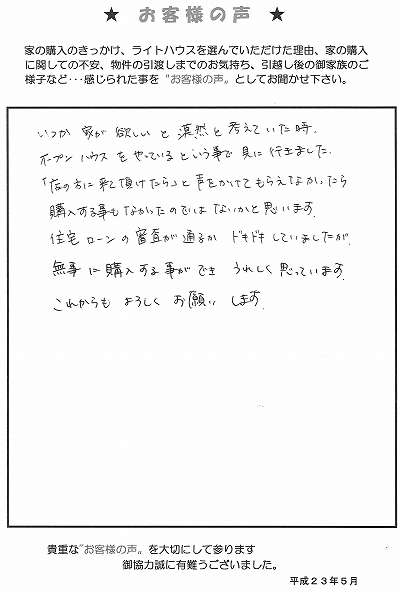 ★ お客様の声 ★
家の購入のきっかけ、ライトハウスを選んでいただけた理由、家の購入
に関しての不安、物件の引渡しまでのお気持ち、引越し後の御家族のご
様子など・・・感じられた事を〝お客様の声〟としてお聞かせ下さい。
いつか 家が 欲しい と 漠然と 考えていた時、
オープンハウス をやっている という事で 見に 行きました。
「店の方に来て頂けたら」と 声をかけて もらえなかったら
購入する事も なかったのでは ないかと 思います。
住宅 ローンの 審査が 通るか ドキドキしていましたが、
無事 に 購入 する 事が でき うれしく 思っています。
これからも よろしく お願い します。
貴重な〝お客様の声〟を大切にして参ります
御協力誠に有難うございました。
平成23年5月